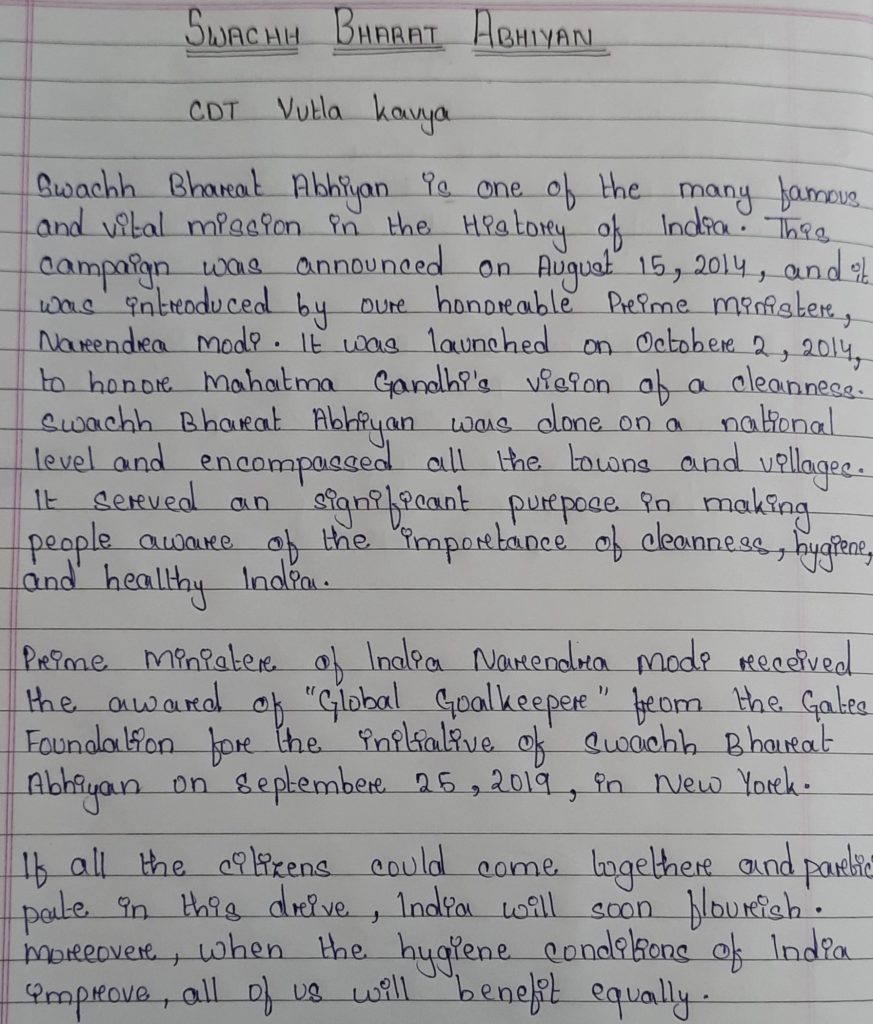 SWACHH BHARAT ABHIYAN
CDT Vutla Kavya
Swachh Bharat Abhiyan is one of the many famous
and vital mission in the History of India. This
campaign was announced on August 15, 2014, and it
was introduced by our honorable Prime Minister,
Narendra Modi. It was launched on October 2, 2014,
to honor Mahatma Gandhi's vision of a cleanness.
Swachh Bharat Abhiyan was done on a national
level and encompassed all the towns and villages.
It served an significant purpose in making
people aware of the importance of cleanness, hygiene,
and healthy India.
Prime Minister of India Narendra Modi received
the award of "Global Goalkeeper" from the Gates
Foundation for the initiative of Swachh Bharat
Abhiyan on September 25, 2019, in New York.
If all the citizens could come together and partici
pate in this drive, India will soon flourish.
Moreover, when the hygiene conditions of India
improve, all of us will benefit equally.